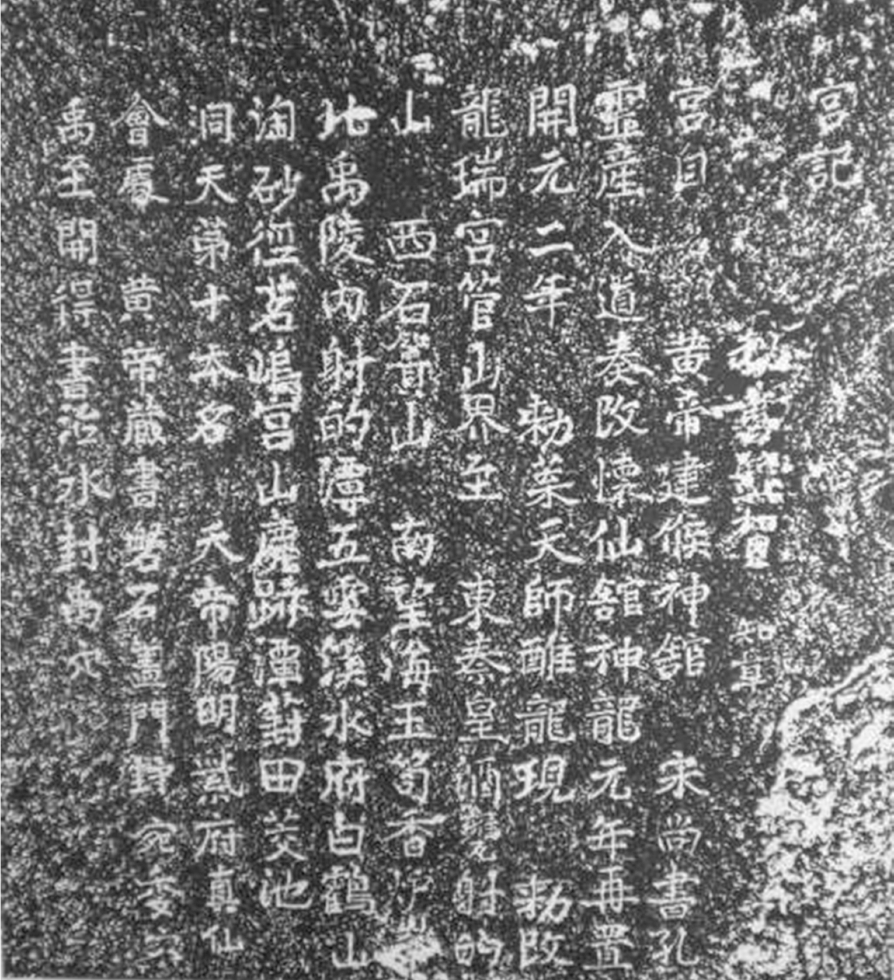 宮記
秘書監賀知章
宮自黄帝建候神舘宋尚書孔
靈產入道奏改懷仙舘神龍元年再置
開元二年勑葉天師醮龍現勑改
龍瑞宮管山界至東秦皇酒甕射的
山西石簣山南望海玉笥香炉峯
北禹陵內射的潭五雲溪水府白鶴山
淘砂徑茗塢宮山鹿跡潭葑田茭池
洞天第十本名天帝陽明紫府真仙
會處黄帝藏書磐石盖門封宛委穴
禹至開得書治水封禹穴